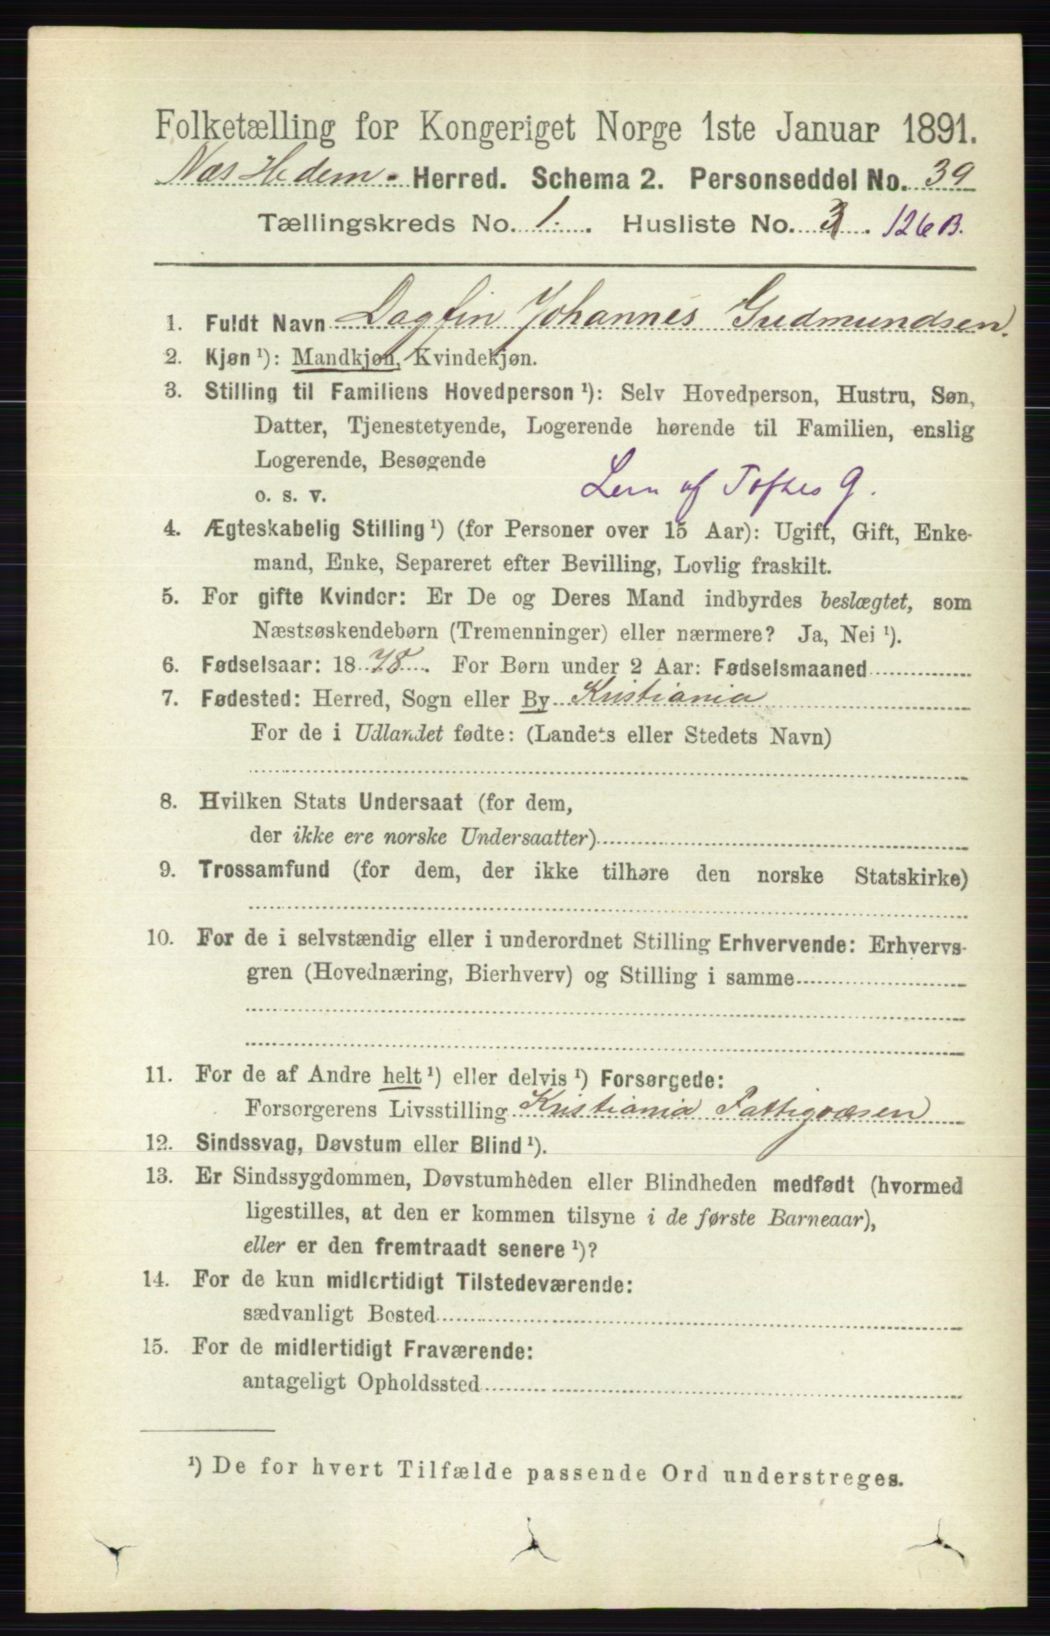 Folketælling for Kongeriget Norge 1ste Januar 1891.
Næs Hedem. Herred. Schema 2. Personseddel No. 39
Tællingskreds No. 1. Husliste No. 3. 126B.
1. Fuldt Navn Dagfin Johannes Gudmundsen.
2. Kjøn ¹): Mandkjøn, Kvindekjøn.
3. Stilling til Familiens Hovedperson ¹): Selv Hovedperson, Hustru, Søn,
Datter, Tjenestetyende, Logerende hørende til Familien, enslig
Logerende, Besøgende
o. s. v. af Toftes G.
4. Ægteskabelig Stilling ¹) (for Personer over 15 Aar): Ugift, Gift, Enke-
mand, Enke, Separeret efter Bevilling, Lovlig fraskilt.
5. For gifte Kvinder: Er De og Deres Mand indbyrdes beslægtet, som
Næstsøskendebørn (Tremenninger) eller nærmere? Ja, Nei ¹).
6. Fødselsaar: 1878. For Børn under 2 Aar: Fødselsmaaned
7. Fødested: Herred, Sogn eller By Kristiania
For de i Udlandet fødte: (Landets eller Stedets Navn)
8. Hvilken Stats Undersaat (for dem,
der ikke ere norske Undersaatter)
9. Trossamfund (for dem, der ikke tilhøre den norske Statskirke)
10. For de i selvstændig eller i underordnet Stilling Erhvervende: Erhvervs-
gren (Hovednæring, Bierhverv) og Stilling i samme
11. For de af Andre helt ¹) eller delvis ¹) Forsørgede:
Forsørgerens Livsstilling Kristiania Fattigvæsen
12. Sindssvag, Døvstum eller Blind ¹).
13. Er Sindssygdommen, Døvstumheden eller Blindheden medfødt (hvormed
ligestilles, at den er kommen tilsyne i de første Barneaar),
eller er den fremtraadt senere ¹)?
14. For de kun midlertidigt Tilstedeværende:
sædvanligt Bosted
15. For de midlertidigt Fraværende:
antageligt Opholdssted
¹) De for hvert Tilfælde passende Ord understreges.